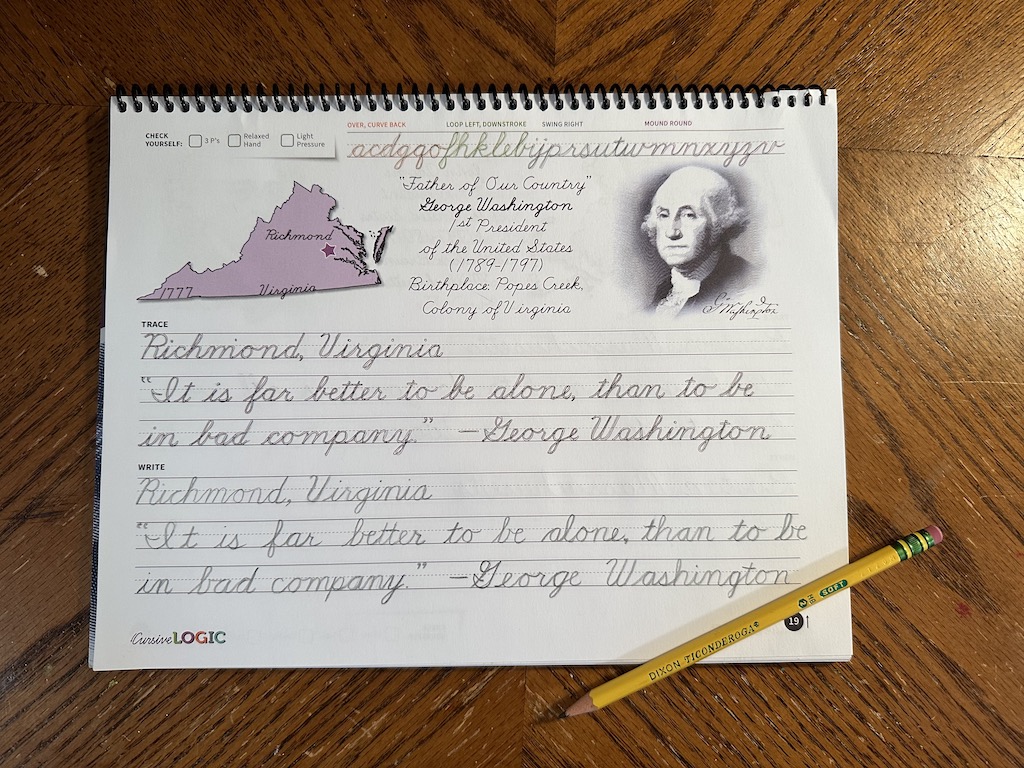 CHECK YOURSELF:
3 P's
Relaxed Hand
Light Pressure
OVER, CURVE BACK
LOOP LEFT, DOWNSTROKE
SWING RIGHT
MOUND ROUND
acdgqofhklebijprsutwmnxyzv
"Father of Our Country"
George Washington
1st President
of the United States
(1789-1797)
Birthplace: Popes Creek,
Colony of Virginia
Richmond
1777
Virginia
G Washington
TRACE
Richmond, Virginia
"It is far better to be alone, than to be
in bad company." —George Washington
WRITE
Richmond, Virginia
"It is far better to be alone, than to be
in bad company." —George Washington
CursiveLOGIC
19
DIXON TICONDEROGA® 2 HB SOFT